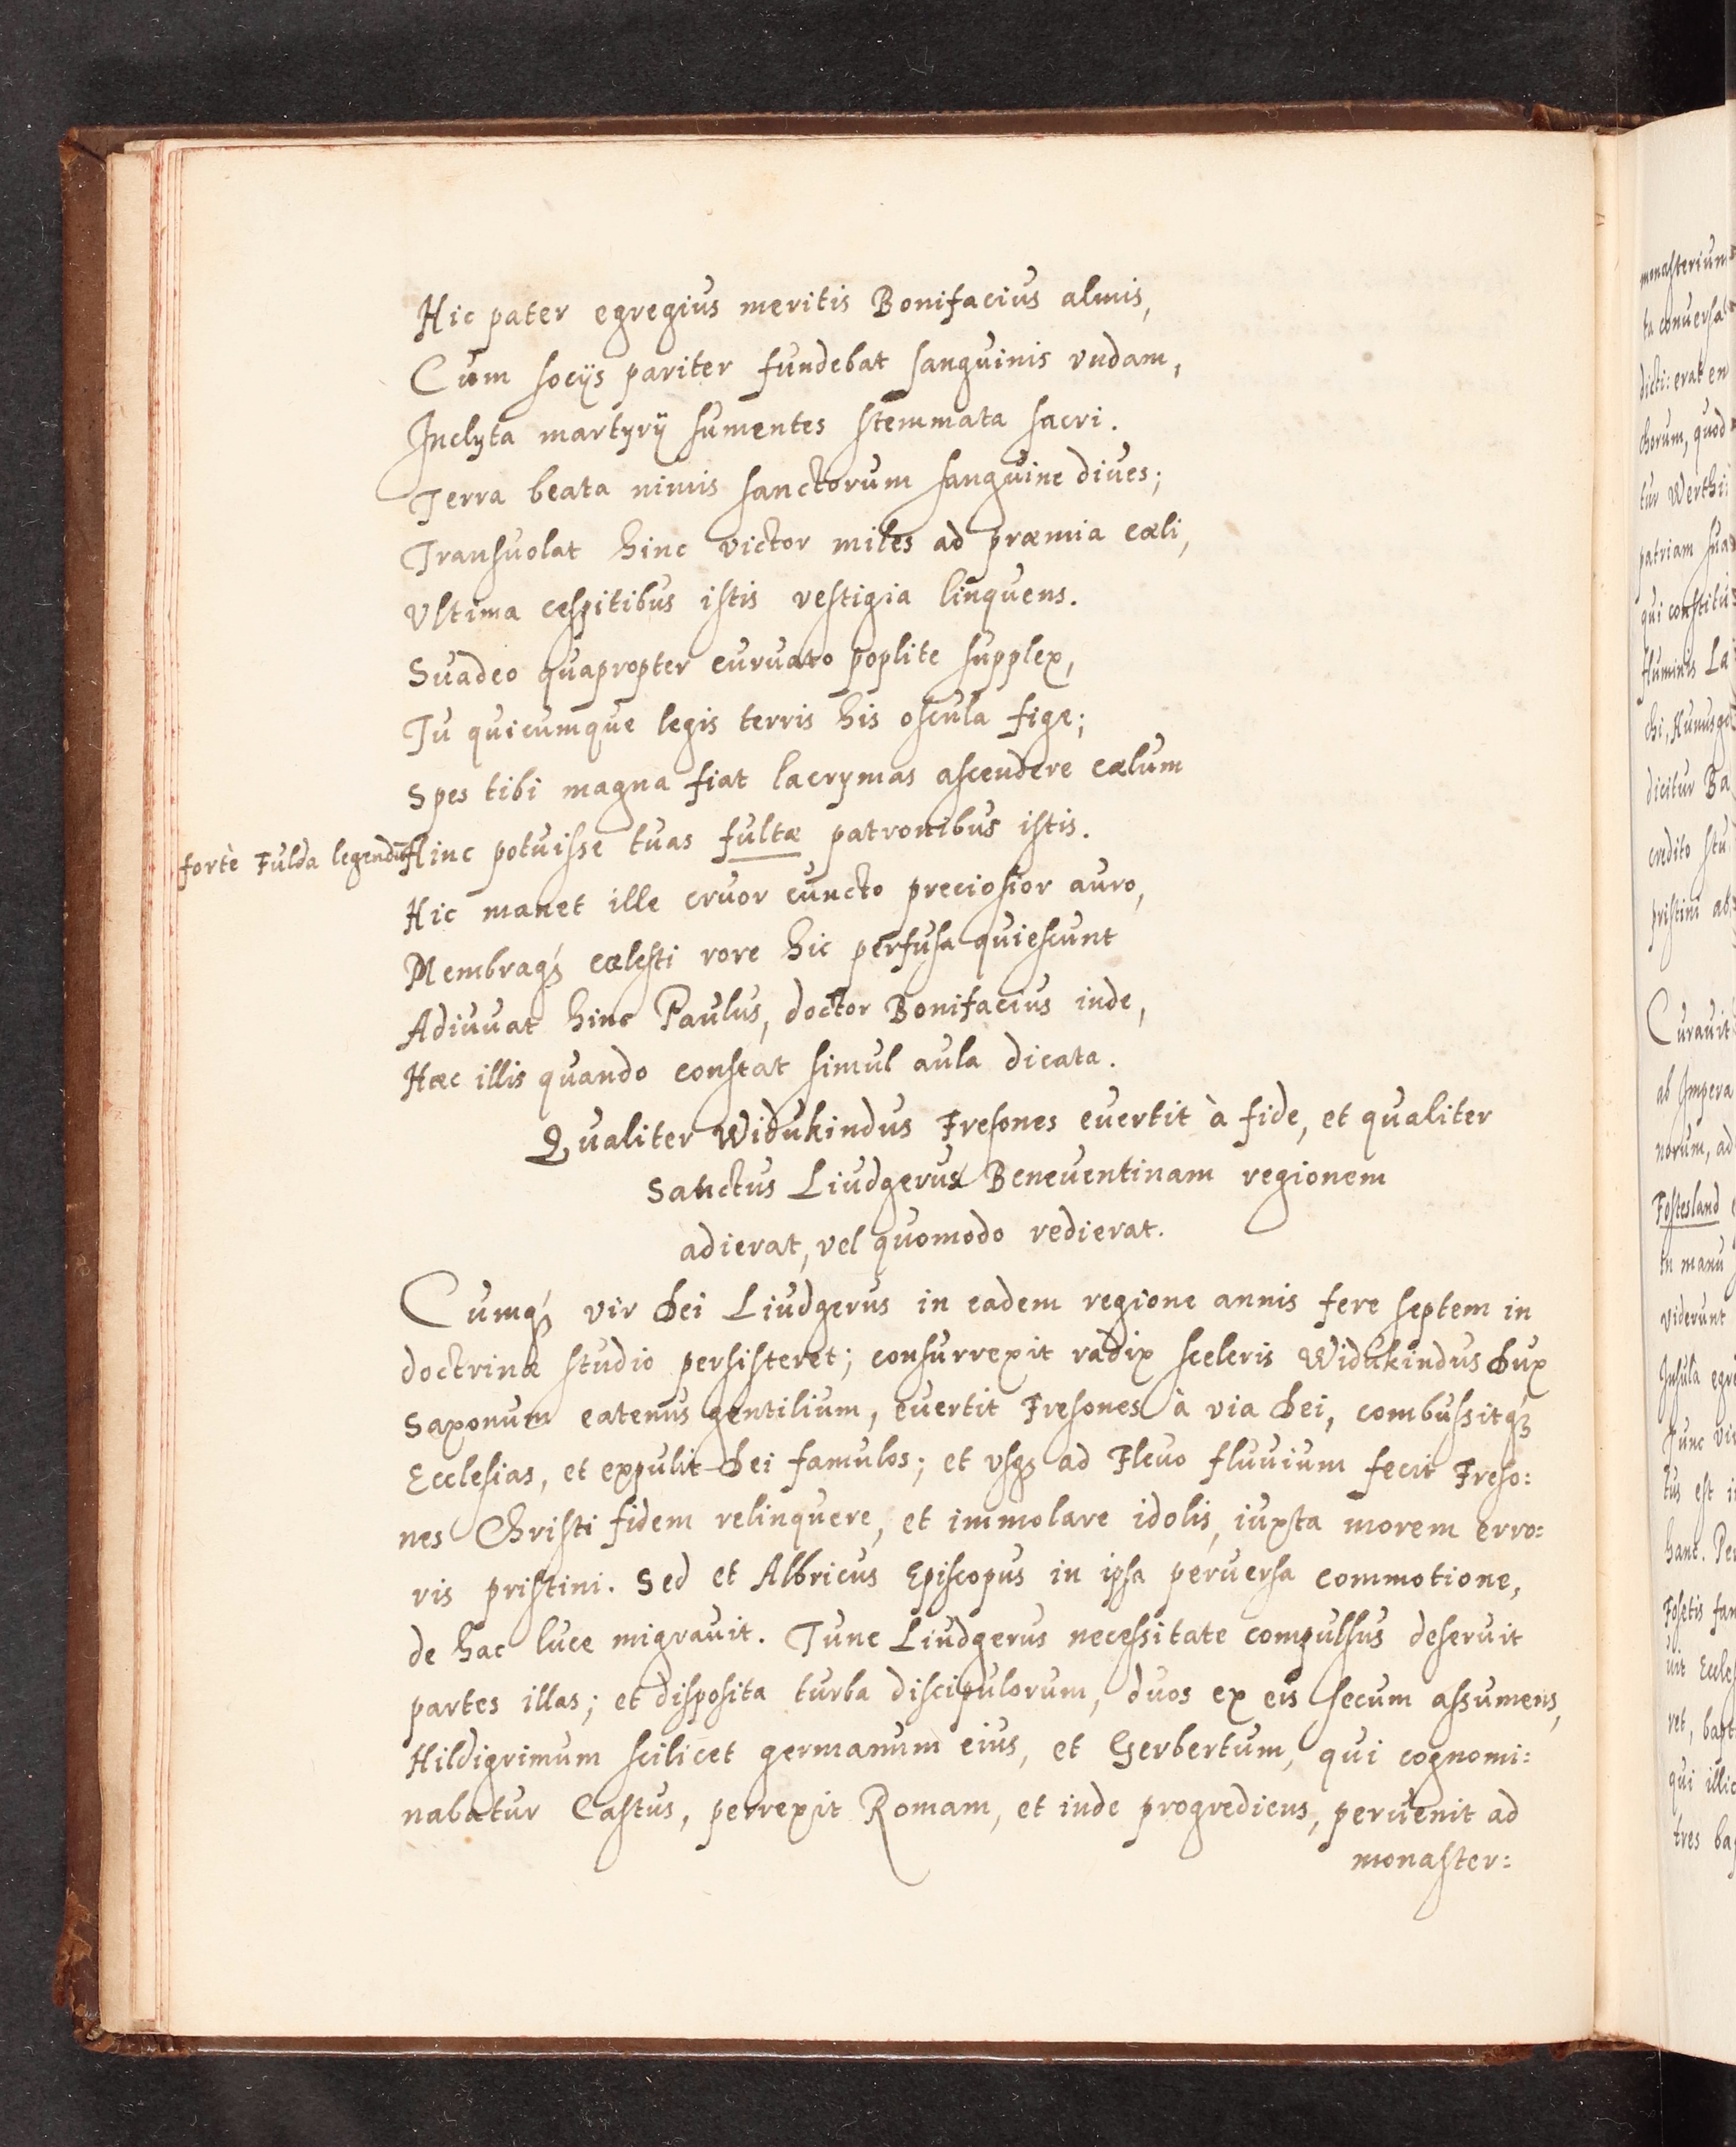 Hic pater egregius meritis Bonifacius almis,
Cum socijs pariter fundebat sanguinis vndam,
Inclyta martyrij sumentes stemmata sacri.
Terra beata nimis sanctorum sanguine diues;
Transuolat hinc victor miles ad præmia cæli,
Vltima cespitibus istis vestigia linquens.
Suadeo quapropter curuato poplite supplex,
Tu quicumque legis terris his oscula fige;
Spes tibi magna fiat lacrymas ascendere cælum
forte Fulda legendū
Hinc potuisse tuas fultæ patronibus istis.
Hic manet ille cruor cuncto preciosior auro,
Membraqꝫ cælesti rore hic perfusa quiescunt
Adiuuat hinc Paulus, doctor Bonifacius inde,
Hæc illis quando constat simul aula dicata.
Qualiter Widukindus Fresones euertit à fide, et qualiter
Sanctus Liudgerus Beneuentinam regionem
adierat, vel quomodo redierat.
Cumqꝫ vir Dei Liudgerus in eadem regione annis fere septem in
doctrinæ studio persisteret; consurrexit radix sceleris Widukindus Dux
Saxonum eatenus gentilium, euertit Fresones à via Dei, combussitqꝫ
Ecclesias, et expulit Dei famulos; et vsqꝫ ad Fleuo fluuium fecit Freso:
nes Christi fidem relinquere, et immolare idolis, iuxta morem erro:
ris pristini. Sed et Albricus Episcopus in ipsa peruersa commotione,
de hac luce migrauit. Tunc Liudgerus necessitate compulsus deseruit
partes illas; et disposita turba discipulorum, duos ex eis secum assumens,
Hildigrimum scilicet germanum eius, et Gerbertum, qui cognomi:
nabatur Castus, perrexit Romam, et inde progrediens, peruenit ad
monaster:
monasterium
dicti: erat en
chorum, quod
tur Werthi
patriam sua
qui constitu
fluminis La
chi, Hunusgo
dicitur Ba
credito stu
pristini ab
Curauit
ab Impera
norum, ad
Fostesland
viderunt
Insula egre
Tunc vi
tus est i
hant. Pe
Fosetis fan
uit Eccles
ret, bapt
qui illic
tres bap